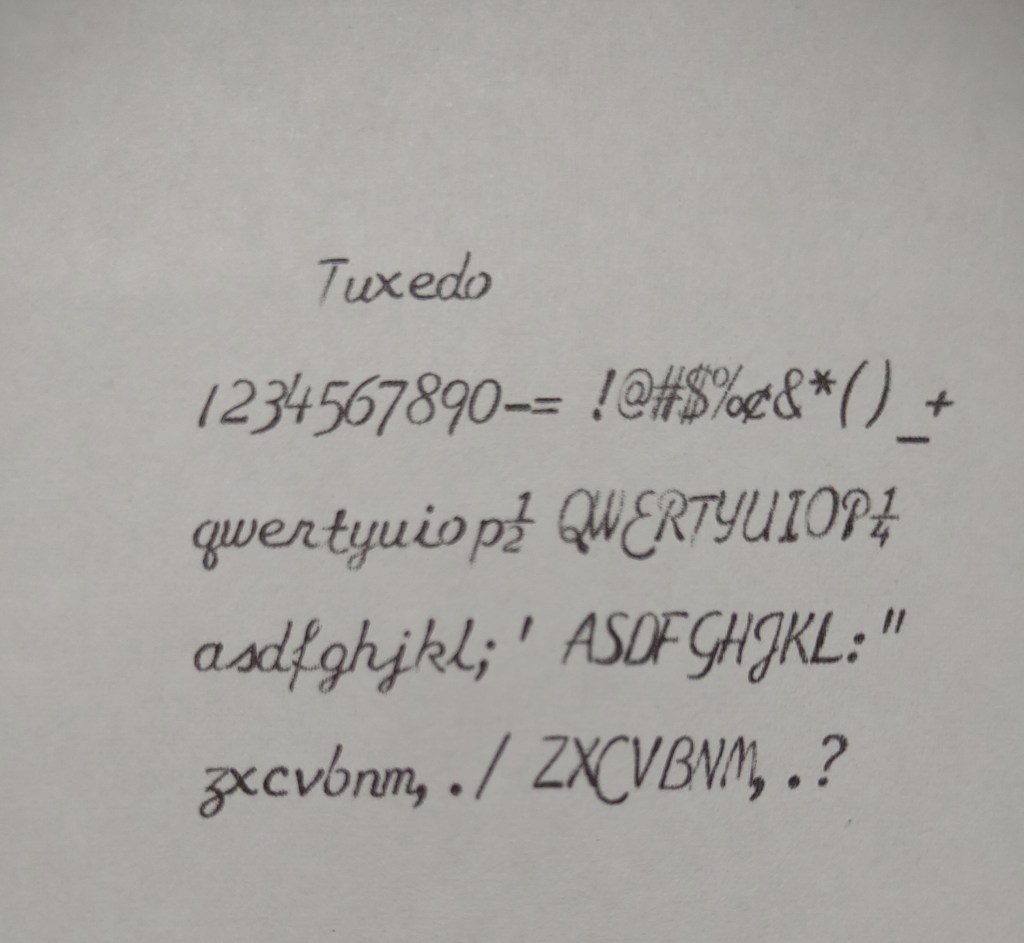 Tuxedo
1234567890-= !@#$%¢&*()_+
qwertyuiop½ QWERTYUIOP¼
asdfghjkl;' ASDFGHJKL:"
zxcvbnm,./ ZXCVBNM,.?